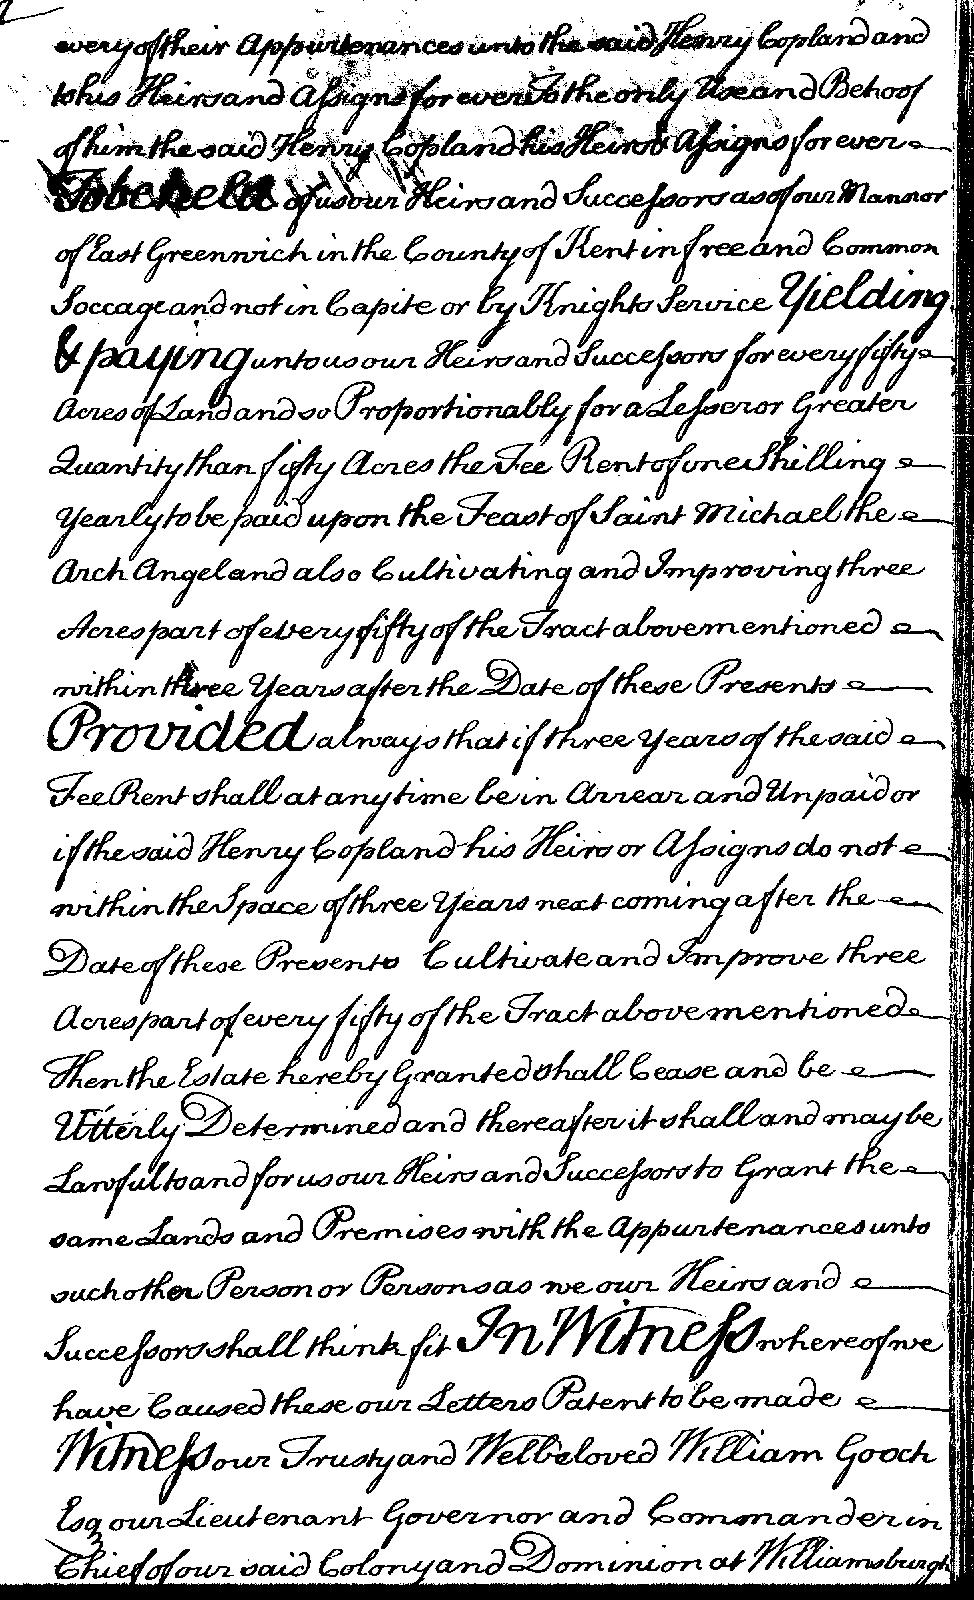 every of their Appurtenances unto the said Henry Copland and
to his Heirs and Assigns for ever To the only Use and Behoof
of him the said Henry Copland his Heirs & Assigns for ever
To be held of us our Heirs and Successors as of our Mannor
of East Greenwich in the County of Kent in free and Common
Soccage and not in Capite or by Knights Service Yielding
& paying unto us our Heirs and Successors for every fifty
Acres of Land and so Proportionably for a Lesser or Greater
Quantity than fifty Acres the Fee Rent of one Shilling
Yearly to be paid upon the Feast of Saint Michael the
Arch Angel and also Cultivating and Improving three
Acres part of every fifty of the Tract above mentioned
within three Years after the Date of these Presents
Provided always that if three Years of the said
Fee Rent shall at any time be in Arrear and Unpaid or
if the said Henry Copland his Heirs or Assigns do not
within the Space of three Years next coming after the
Date of these Presents Cultivate and Improve three
Acres part of every fifty of the Tract above mentioned
Then the Estate hereby Granted shall Cease and be
Utterly Determined and thereafter it shall and may be
Lawful to and for us our Heirs and Successors to Grant the
same Lands and Premises with the Appurtenances unto
such other Person or Persons as we our Heirs and
Successors shall think fit In Witness whereof we
have Caused these our Letters Patent to be made
Witness our Trusty and Welbeloved William Gooch
Esq our Lieutenant Governor and Commander in
Chief of our said Colony and Dominion at Williamsburgh